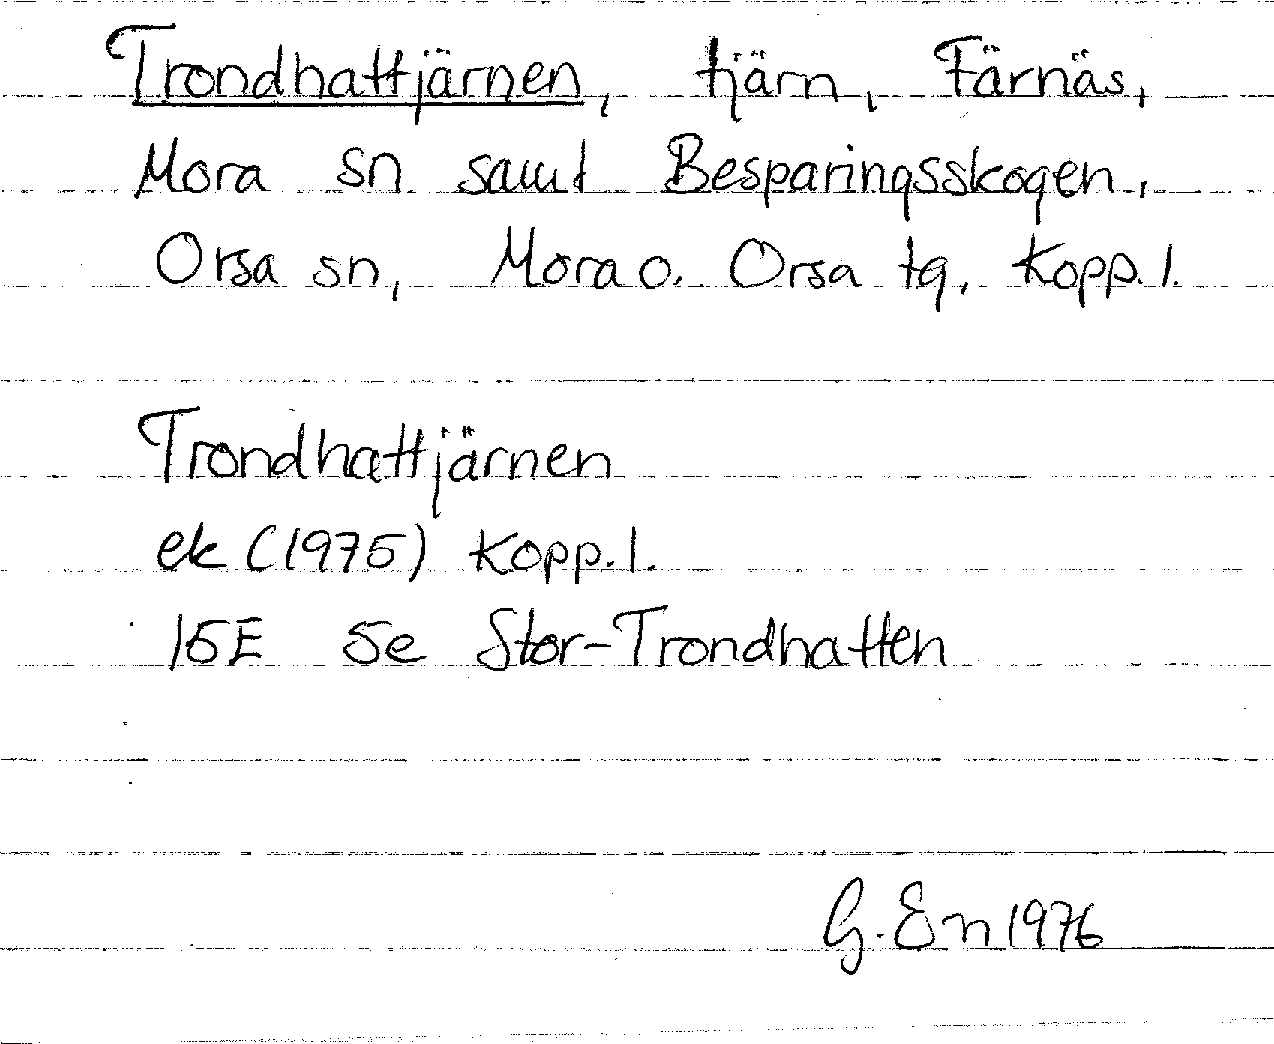 Trondhattjärnen, tjärn, Färnäs,
Mora sn samt Besparingsskogen,
Orsa sn, Mora o. Orsa tg, Kopp. l.
Trondhattjärnen
ek (1975) Kopp. l.
15E 5e Stor-Trondhatten
G. En 1976